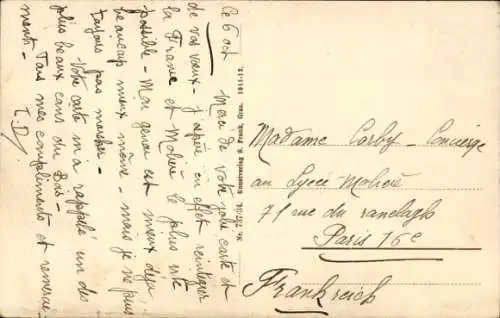 Ce 6 oct
Merci de votre jolie carte et
de vos vœux - J'espère en effet reintégrer
la France et Molière le plus vite
possible - Mon genou est mieux déjà,
beaucoup mieux même - mais je ne puis
toujours pas marcher -
Votre carte m'a rappelé un des
plus beaux coins du Bois
Tous mes compliments et remercie-
ments -
T. D.
Kunstverlag
Frank, Graz. 1911-12.
Madame Corby - Concierge
au Lycée Molière
71 rue du ranelagh
Paris 16e
Frankreich